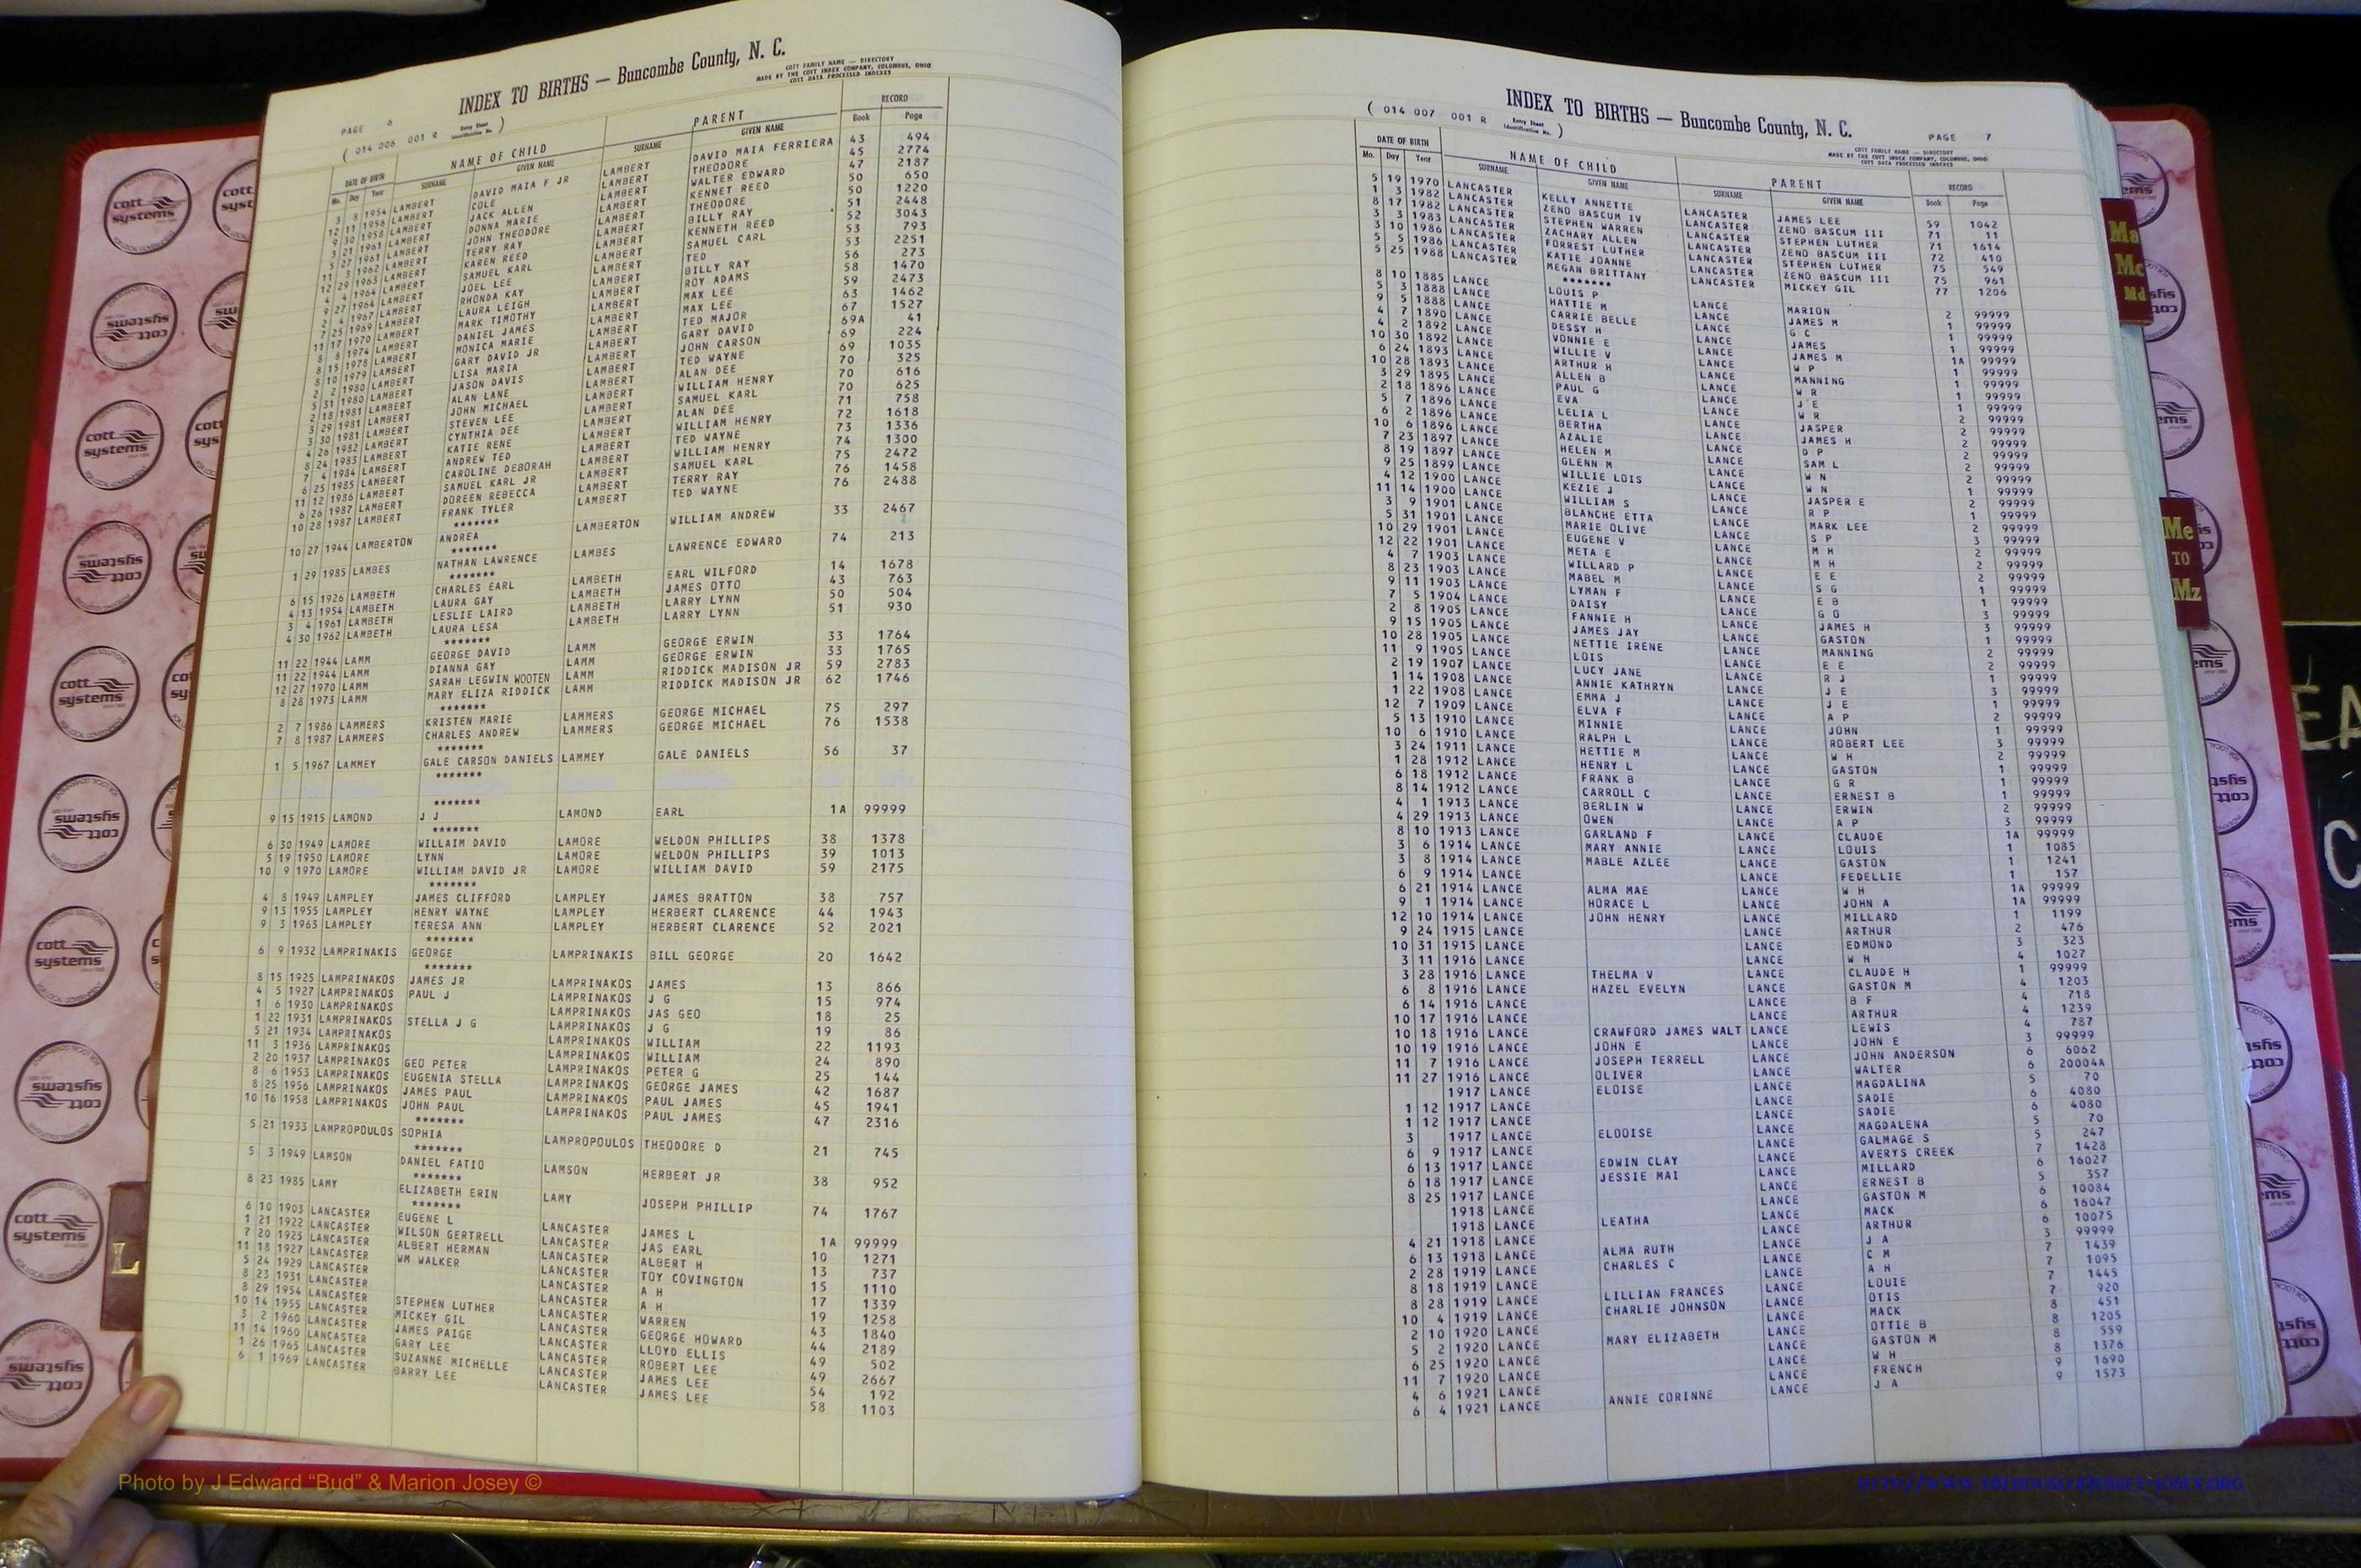 INDEX TO BIRTHS — Buncombe County, N. C.
COTT FAMILY NAME — DIRECTORY
MADE BY THE COTT INDEX COMPANY, COLUMBUS, OHIO
COTT DATA PROCESSED INDEXES
PAGE 6
( 014 006 001 R Entry Sheet Identification No. )
DATE OF BIRTH NAME OF CHILD PARENT RECORD
Mo. Day Year SURNAME GIVEN NAME SURNAME GIVEN NAME Book Page
3 8 1954 LAMBERT DAVID MAIA F JR LAMBERT DAVID MAIA FERRIERA 43 494
12 11 1956 LAMBERT COLE LAMBERT THEODORE 45 2774
9 30 1958 LAMBERT JACK ALLEN LAMBERT WALTER EDWARD 47 2187
3 21 1961 LAMBERT DONNA MARIE LAMBERT KENNET REED 50 650
5 27 1961 LAMBERT JOHN THEODORE LAMBERT THEODORE 50 1220
11 3 1962 LAMBERT TERRY RAY LAMBERT BILLY RAY 51 2448
12 29 1963 LAMBERT KAREN REED LAMBERT KENNETH REED 52 3043
4 4 1964 LAMBERT SAMUEL KARL LAMBERT SAMUEL CARL 53 793
9 27 1964 LAMBERT JOEL LEE LAMBERT TED 53 2251
2 4 1967 LAMBERT RHONDA KAY LAMBERT BILLY RAY 56 273
7 25 1969 LAMBERT LAURA LEIGH LAMBERT ROY ADAMS 58 1470
11 17 1970 LAMBERT MARK TIMOTHY LAMBERT MAX LEE 59 2473
8 8 1974 LAMBERT DANIEL JAMES LAMBERT MAX LEE 63 1462
8 15 1978 LAMBERT MONICA MARIE LAMBERT TED MAJOR 67 1527
8 10 1979 LAMBERT GARY DAVID JR LAMBERT GARY DAVID 69A 41
2 2 1980 LAMBERT LISA MARIA LAMBERT JOHN CARSON 69 224
5 31 1980 LAMBERT JASON DAVIS LAMBERT TED WAYNE 69 1035
2 18 1981 LAMBERT ALAN LANE LAMBERT ALAN DEE 70 325
3 29 1981 LAMBERT JOHN MICHAEL LAMBERT WILLIAM HENRY 70 616
3 30 1981 LAMBERT STEVEN LEE LAMBERT SAMUEL KARL 70 625
4 26 1982 LAMBERT CYNTHIA DEE LAMBERT ALAN DEE 71 758
8 24 1983 LAMBERT KATIE RENE LAMBERT WILLIAM HENRY 72 1618
7 4 1984 LAMBERT ANDREW TED LAMBERT TED WAYNE 73 1336
6 25 1985 LAMBERT CAROLINE DEBORAH LAMBERT WILLIAM HENRY 74 1300
11 12 1986 LAMBERT SAMUEL KARL JR LAMBERT SAMUEL KARL 75 2472
6 26 1987 LAMBERT DOREEN REBECCA LAMBERT TERRY RAY 76 1458
10 28 1987 LAMBERT FRANK TYLER LAMBERT TED WAYNE 76 2488
*******
10 27 1944 LAMBERTON ANDREA LAMBERTON WILLIAM ANDREW 33 2467
*******
1 29 1985 LAMBES NATHAN LAWRENCE LAMBES LAWRENCE EDWARD 74 213
*******
6 15 1926 LAMBETH CHARLES EARL LAMBETH EARL WILFORD 14 1678
4 13 1954 LAMBETH LAURA GAY LAMBETH JAMES OTTO 43 763
3 4 1961 LAMBETH LESLIE LAIRD LAMBETH LARRY LYNN 50 504
4 30 1962 LAMBETH LAURA LESA LAMBETH LARRY LYNN 51 930
*******
11 22 1944 LAMM GEORGE DAVID LAMM GEORGE ERWIN 33 1764
11 22 1944 LAMM DIANNA GAY LAMM GEORGE ERWIN 33 1765
12 27 1970 LAMM SARAH LEGWIN WOOTEN LAMM RIDDICK MADISON JR 59 2783
8 28 1973 LAMM MARY ELIZA RIDDICK LAMM RIDDICK MADISON JR 62 1746
*******
2 7 1986 LAMMERS KRISTEN MARIE LAMMERS GEORGE MICHAEL 75 297
7 8 1987 LAMMERS CHARLES ANDREW LAMMERS GEORGE MICHAEL 76 1538
*******
1 5 1967 LAMMEY GALE CARSON DANIELS LAMMEY GALE DANIELS 56 37
*******
*******
9 15 1915 LAMOND J J LAMOND EARL 1A 99999
*******
6 30 1949 LAMORE WILLAIM DAVID LAMORE WELDON PHILLIPS 38 1378
5 19 1950 LAMORE LYNN LAMORE WELDON PHILLIPS 39 1013
10 9 1970 LAMORE WILLIAM DAVID JR LAMORE WILLIAM DAVID 59 2175
*******
4 8 1949 LAMPLEY JAMES CLIFFORD LAMPLEY JAMES BRATTON 38 757
9 13 1955 LAMPLEY HENRY WAYNE LAMPLEY HERBERT CLARENCE 44 1943
9 3 1963 LAMPLEY TERESA ANN LAMPLEY HERBERT CLARENCE 52 2021
*******
6 9 1932 LAMPRINAKIS GEORGE LAMPRINAKIS BILL GEORGE 20 1642
*******
8 15 1925 LAMPRINAKOS JAMES JR LAMPRINAKOS JAMES 13 866
4 5 1927 LAMPRINAKOS PAUL J LAMPRINAKOS J G 15 974
1 6 1930 LAMPRINAKOS LAMPRINAKOS JAS GEO 18 25
1 22 1931 LAMPRINAKOS STELLA J G LAMPRINAKOS J G 19 86
5 21 1934 LAMPRINAKOS LAMPRINAKOS WILLIAM 22 1193
11 3 1936 LAMPRINAKOS LAMPRINAKOS WILLIAM 24 890
2 20 1937 LAMPRINAKOS GEO PETER LAMPRINAKOS PETER G 25 144
8 6 1953 LAMPRINAKOS EUGENIA STELLA LAMPRINAKOS GEORGE JAMES 42 1687
8 25 1956 LAMPRINAKOS JAMES PAUL LAMPRINAKOS PAUL JAMES 45 1941
10 16 1958 LAMPRINAKOS JOHN PAUL LAMPRINAKOS PAUL JAMES 47 2316
*******
5 21 1933 LAMPROPOULOS SOPHIA LAMPROPOULOS THEODORE D 21 745
*******
5 3 1949 LAMSON DANIEL FATIO LAMSON HERBERT JR 38 952
*******
8 23 1985 LAMY ELIZABETH ERIN LAMY JOSEPH PHILLIP 74 1767
*******
6 10 1903 LANCASTER EUGENE L LANCASTER JAMES L 1A 99999
1 21 1922 LANCASTER WILSON GERTRELL LANCASTER JAS EARL 10 1271
7 20 1925 LANCASTER ALBERT HERMAN LANCASTER ALBERT H 13 737
11 18 1927 LANCASTER WM WALKER LANCASTER TOY COVINGTON 15 1110
5 24 1929 LANCASTER LANCASTER A H 17 1339
8 23 1931 LANCASTER LANCASTER A H 19 1258
8 29 1954 LANCASTER STEPHEN LUTHER LANCASTER WARREN 43 1840
10 14 1955 LANCASTER MICKEY GIL LANCASTER GEORGE HOWARD 44 2189
3 2 1960 LANCASTER JAMES PAIGE LANCASTER LLOYD ELLIS 49 502
11 14 1960 LANCASTER GARY LEE LANCASTER ROBERT LEE 49 2667
1 26 1965 LANCASTER SUZANNE MICHELLE LANCASTER JAMES LEE 54 192
6 1 1969 LANCASTER BARRY LEE LANCASTER JAMES LEE 58 1103
INDEX TO BIRTHS — Buncombe County, N. C.
( 014 007 001 R Entry Sheet Identification No. )
PAGE 7
COTT FAMILY NAME — DIRECTORY
MADE BY THE COTT INDEX COMPANY, COLUMBUS, OHIO
COTT DATA PROCESSED INDEXES
DATE OF BIRTH NAME OF CHILD PARENT RECORD
Mo. Day Year SURNAME GIVEN NAME SURNAME GIVEN NAME Book Page
5 19 1970 LANCASTER KELLY ANNETTE LANCASTER JAMES LEE 59 1042
1 3 1982 LANCASTER ZENO BASCUM IV LANCASTER ZENO BASCUM III 71 11
8 17 1982 LANCASTER STEPHEN WARREN LANCASTER STEPHEN LUTHER 71 1614
3 3 1983 LANCASTER ZACHARY ALLEN LANCASTER ZENO BASCUM III 72 410
3 10 1986 LANCASTER FORREST LUTHER LANCASTER STEPHEN LUTHER 75 549
5 5 1986 LANCASTER KATIE JOANNE LANCASTER ZENO BASCUM III 75 961
5 25 1988 LANCASTER MEGAN BRITTANY LANCASTER MICKEY GIL 77 1206
*******
8 10 1885 LANCE LOUIS P LANCE MARION 2 99999
5 3 1888 LANCE HATTIE M LANCE JAMES M 1 99999
9 5 1888 LANCE CARRIE BELLE LANCE G C 1 99999
4 7 1890 LANCE DESSY H LANCE JAMES 1 99999
4 2 1892 LANCE VONNIE E LANCE JAMES M 1A 99999
10 30 1892 LANCE WILLIE V LANCE W P 1 99999
6 24 1893 LANCE ARTHUR H LANCE MANNING 1 99999
10 28 1893 LANCE ALLEN B LANCE W R 1 99999
3 29 1895 LANCE PAUL G LANCE J E 1 99999
2 18 1896 LANCE EVA LANCE W R 2 99999
5 7 1896 LANCE LELIA L LANCE JASPER 2 99999
6 2 1896 LANCE BERTHA LANCE JAMES H 2 99999
10 6 1896 LANCE AZALIE LANCE D P 2 99999
7 23 1897 LANCE HELEN M LANCE SAM L 2 99999
8 19 1897 LANCE GLENN M LANCE W N 2 99999
9 25 1899 LANCE WILLIE LOIS LANCE W N 1 99999
4 12 1900 LANCE KEZIE J LANCE JASPER E 2 99999
11 14 1900 LANCE WILLIAM S LANCE R P 1 99999
3 9 1901 LANCE BLANCHE ETTA LANCE MARK LEE 2 99999
5 31 1901 LANCE MARIE OLIVE LANCE S P 3 99999
10 29 1901 LANCE EUGENE V LANCE M H 2 99999
12 22 1901 LANCE META E LANCE M H 2 99999
4 7 1903 LANCE WILLARD P LANCE E E 2 99999
8 23 1903 LANCE MABEL M LANCE S G 1 99999
9 11 1903 LANCE LYMAN F LANCE E B 1 99999
7 5 1904 LANCE DAISY LANCE G O 3 99999
2 8 1905 LANCE FANNIE H LANCE JAMES H 3 99999
9 15 1905 LANCE JAMES JAY LANCE GASTON 1 99999
10 28 1905 LANCE NETTIE IRENE LANCE MANNING 2 99999
11 9 1905 LANCE LOIS LANCE E E 2 99999
2 19 1907 LANCE LUCY JANE LANCE R J 1 99999
1 14 1908 LANCE ANNIE KATHRYN LANCE J E 3 99999
1 22 1908 LANCE EMMA J LANCE J E 1 99999
12 7 1909 LANCE ELVA F LANCE A P 2 99999
5 13 1910 LANCE MINNIE LANCE JOHN 1 99999
10 6 1910 LANCE RALPH L LANCE ROBERT LEE 3 99999
3 24 1911 LANCE HETTIE M LANCE W H 2 99999
1 28 1912 LANCE HENRY L LANCE GASTON 1 99999
6 18 1912 LANCE FRANK B LANCE G R 1 99999
8 14 1912 LANCE CARROLL C LANCE ERNEST B 1 99999
4 1 1913 LANCE BERLIN W LANCE ERWIN 2 99999
4 29 1913 LANCE OWEN LANCE A P 3 99999
8 10 1913 LANCE GARLAND F LANCE CLAUDE 1A 99999
3 6 1914 LANCE MARY ANNIE LANCE LOUIS 1 1085
3 8 1914 LANCE MABLE AZLEE LANCE GASTON 1 1241
6 9 1914 LANCE LANCE FEDELLIE 1 157
6 21 1914 LANCE ALMA MAE LANCE W H 1A 99999
9 1 1914 LANCE HORACE L LANCE JOHN A 1A 99999
12 10 1914 LANCE JOHN HENRY LANCE MILLARD 1 1199
9 24 1915 LANCE LANCE ARTHUR 2 476
10 31 1915 LANCE LANCE EDMOND 3 323
3 11 1916 LANCE LANCE W H 4 1027
3 28 1916 LANCE THELMA V LANCE CLAUDE H 1 99999
6 8 1916 LANCE HAZEL EVELYN LANCE GASTON M 4 1203
6 14 1916 LANCE LANCE B F 4 718
10 17 1916 LANCE LANCE ARTHUR 4 1239
10 18 1916 LANCE CRAWFORD JAMES WALT LANCE LEWIS 4 787
10 19 1916 LANCE JOHN E LANCE JOHN E 3 99999
11 7 1916 LANCE JOSEPH TERRELL LANCE JOHN ANDERSON 6 6062
11 27 1916 LANCE OLIVER LANCE WALTER 6 20004A
1917 LANCE ELOISE LANCE MAGDALINA 5 70
1 12 1917 LANCE LANCE SADIE 6 4080
1 12 1917 LANCE LANCE SADIE 6 4080
3 1917 LANCE ELODISE LANCE MAGDALENA 5 70
6 9 1917 LANCE LANCE GALMAGE S 5 247
6 13 1917 LANCE EDWIN CLAY LANCE AVERYS CREEK 7 1428
6 18 1917 LANCE JESSIE MAI LANCE MILLARD 6 16027
8 25 1917 LANCE LANCE ERNEST B 5 357
1918 LANCE LANCE GASTON M 6 10084
1918 LANCE LEATHA LANCE MACK 6 16047
4 21 1918 LANCE LANCE ARTHUR 6 10075
6 13 1918 LANCE ALMA RUTH LANCE J A 3 99999
2 28 1919 LANCE CHARLES C LANCE C M 7 1439
8 18 1919 LANCE LANCE A H 7 1095
8 28 1919 LANCE LILLIAN FRANCES LANCE LOUIE 7 1445
10 4 1919 LANCE CHARLIE JOHNSON LANCE OTIS 7 920
2 10 1920 LANCE LANCE MACK 8 451
5 2 1920 LANCE MARY ELIZABETH LANCE OTTIE B 8 1205
6 25 1920 LANCE LANCE GASTON M 8 559
11 7 1920 LANCE LANCE W H 8 1376
4 6 1921 LANCE ANNIE CORINNE LANCE FRENCH 9 1690
6 4 1921 LANCE LANCE J A 9 1573
L
Ma
Mc
Md
Me
TO
Mz
cott systems
Photo by J Edward “Bud” & Marion Josey ©
HTTP://WWW.THEHOUSEOFJOSSEY-JOSEY.ORG